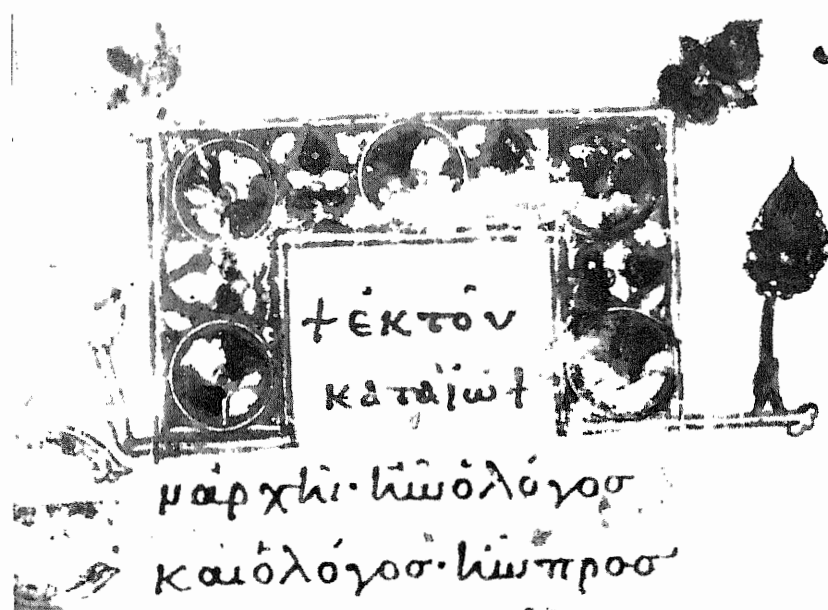 + ἐκ τοῦ
κατὰ ἰω +
Ἐν ἀρχῆι· ἦν ὁ λόγοσ
καὶ ὁ λόγοσ· ἦν προσ